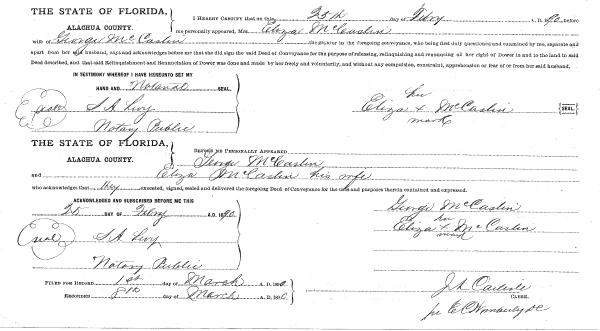 THE STATE OF FLORIDA,
ALACHUA COUNTY.
I HEREBY CERTIFY that on this 25th day of Febry A. D. 90 before
me personally appeared, Mrs. Eliza McCaslin
wife of George McCaslin the grantor in the foregoing conveyance, who being by me duly questioned and examined by me, separate and
apart from her said husband, says and acknowledges before me that she did sign the said Deed of Conveyance for the purpose of releasing, relinquishing and renouncing all her right of Dower in and to the land in said
Deed described, and that said Relinquishment and Renunciation of Dower was done and made by her freely and voluntarily, and without any compulsion, constraint, apprehension or fear of or from her said husband.
IN TESTIMONY WHEREOF I HAVE HEREUNTO SET MY
HAND AND Notarial SEAL.
her
Seal S. A. Livy Eliza x McCaslin SEAL
mark
Notary Public
THE STATE OF FLORIDA,
ALACHUA COUNTY.
BEFORE ME PERSONALLY APPEARED
George McCaslin
and Eliza McCaslin his wife
who acknowledge that they executed, signed, sealed and delivered the foregoing Deed of Conveyance for the uses and purposes therein contained and expressed.
ACKNOWLEDGED AND SUBSCRIBED BEFORE ME THIS
25 DAY OF Febry A.D. 1890
George McCaslin
her
Eliza x McCaslin
mark
Seal S. A. Livy
Notary Public
FILED FOR RECORD 1st day of March A. D. 1890
RECORDED 8th day of March A. D. 1890
J A Carlisle
CLERK.
per E C